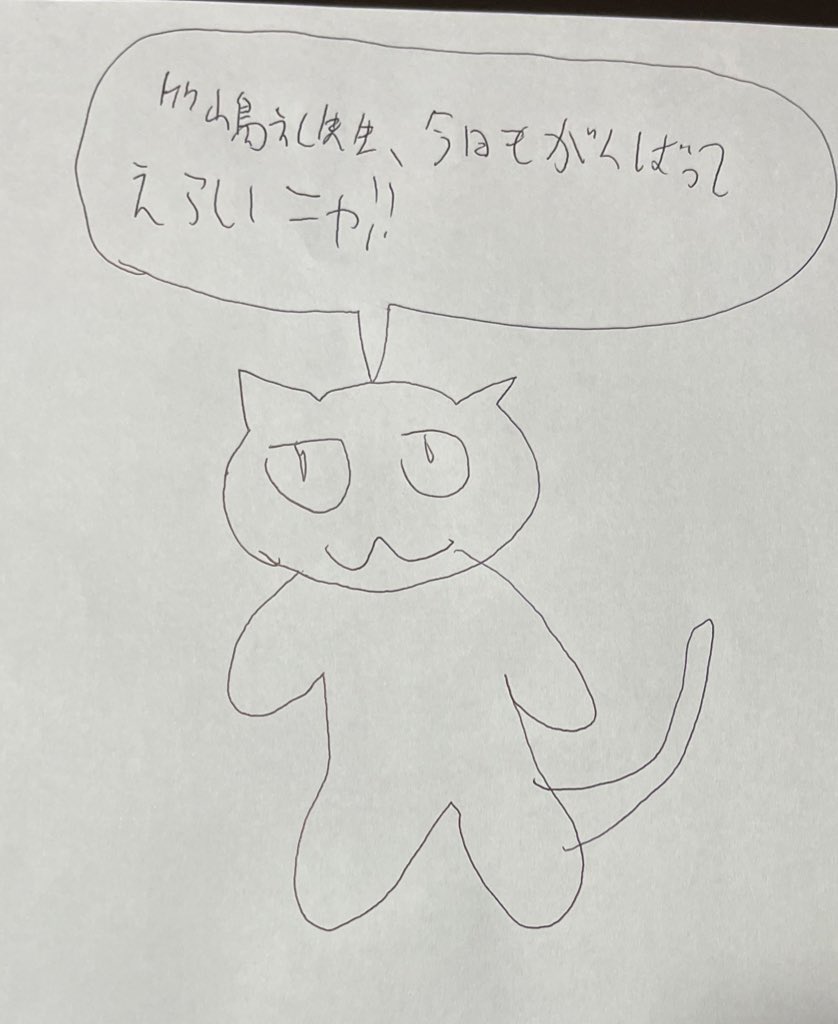 先生、今日もがんばって
えらいニャ!!